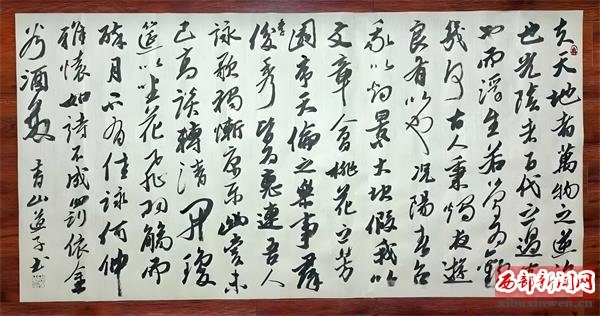 夫天地者萬物之逆旅
也光陰者百代之過
也而浮生若夢為歡
幾何古人秉燭夜遊
良有以也况陽春召
我以煙景大塊假我以
文章會桃花之芳
園序天倫之樂事羣
季俊秀皆為惠連吾人
詠歌獨慚康樂幽賞未
已高談轉清開瓊
筵以坐花飛羽觴而
醉月不有佳詠何伸
雅懷如詩不成罰依金
谷酒數 青山道子書
西部新闻网
xibuxinwen.cn